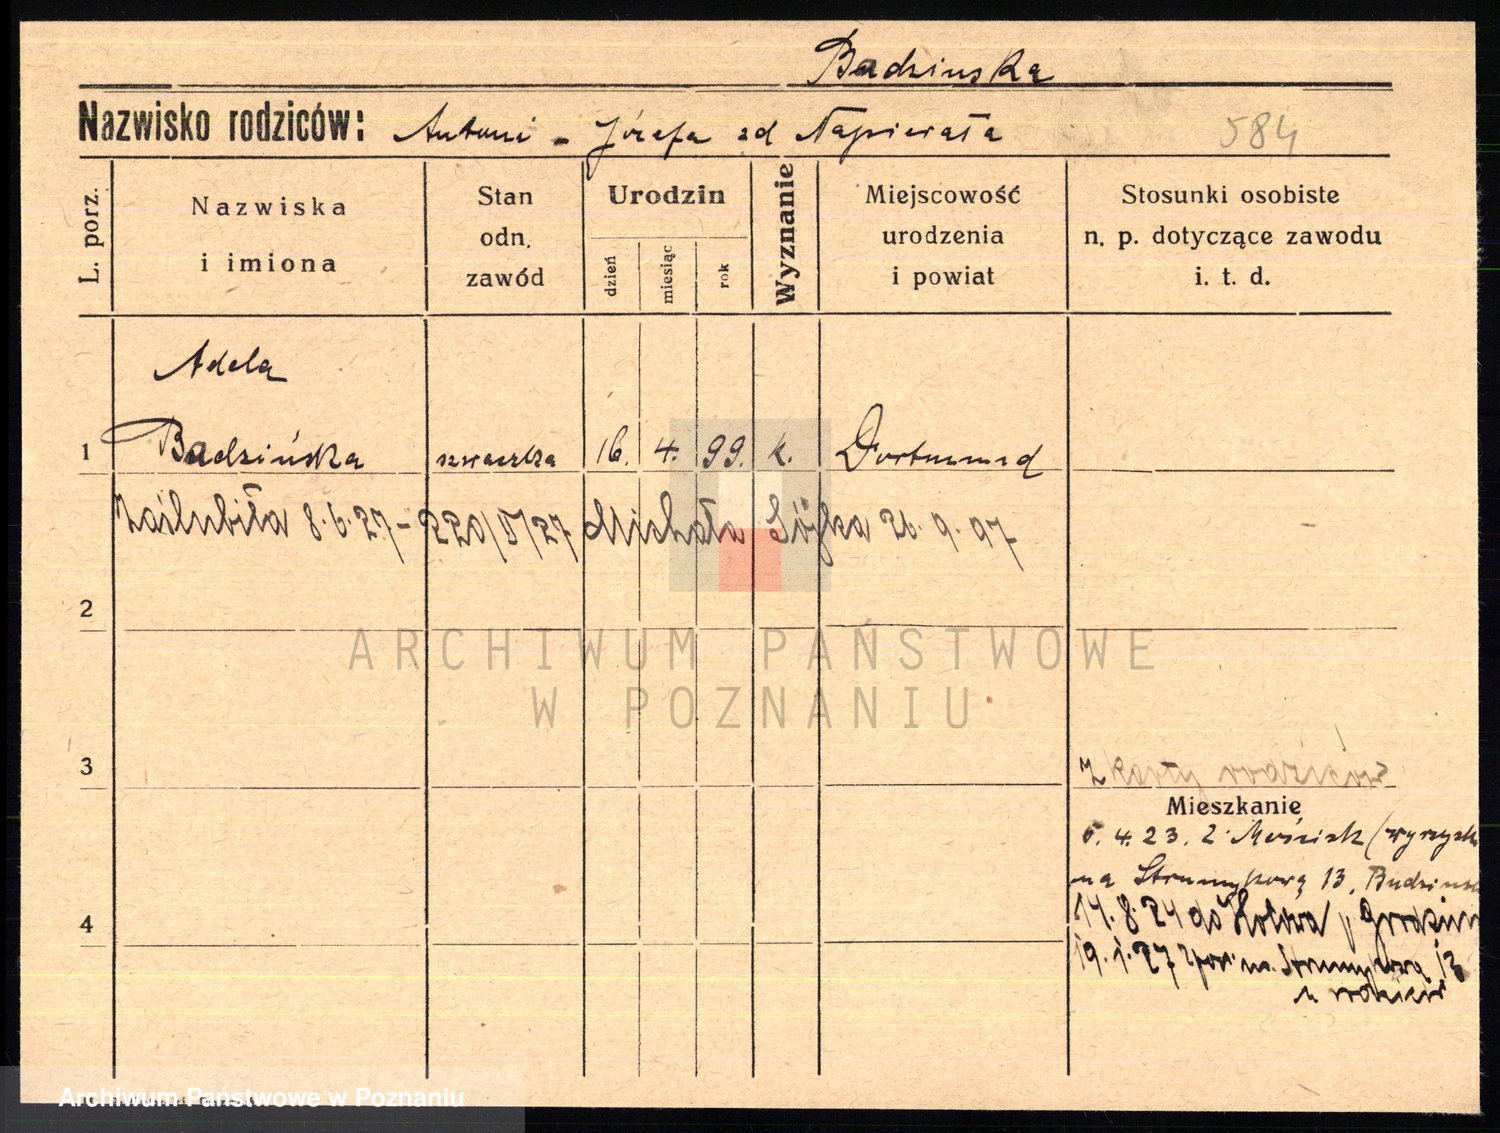 Badzinska
Nazwisko rodziców: Antoni - Józefa zd Napierała 584
L. porz.
Nazwiska i imiona
Stan odn. zawód
Urodzin
dzień
miesiąc
rok
Wyznanie
Miejscowość urodzenia i powiat
Stosunki osobiste n. p. dotyczące zawodu i. t. d.
Adela
1 Badzińska szwaczka 16. 4. 99. k. Dortmund
Zaślubiła 8.6.27 - 220/5/27 Michała Sójka 26.9.97
2
ARCHIWUM PAŃSTWOWE
W POZNANIU
3
Z karty rodziców
Mieszkanie
5.4.23. Z (Wyrzysk
na Strumykową 13,
4
14.8.24 do
19.1.27 Strumykowa 13
u rodziców
Archiwum Państwowe w Poznaniu